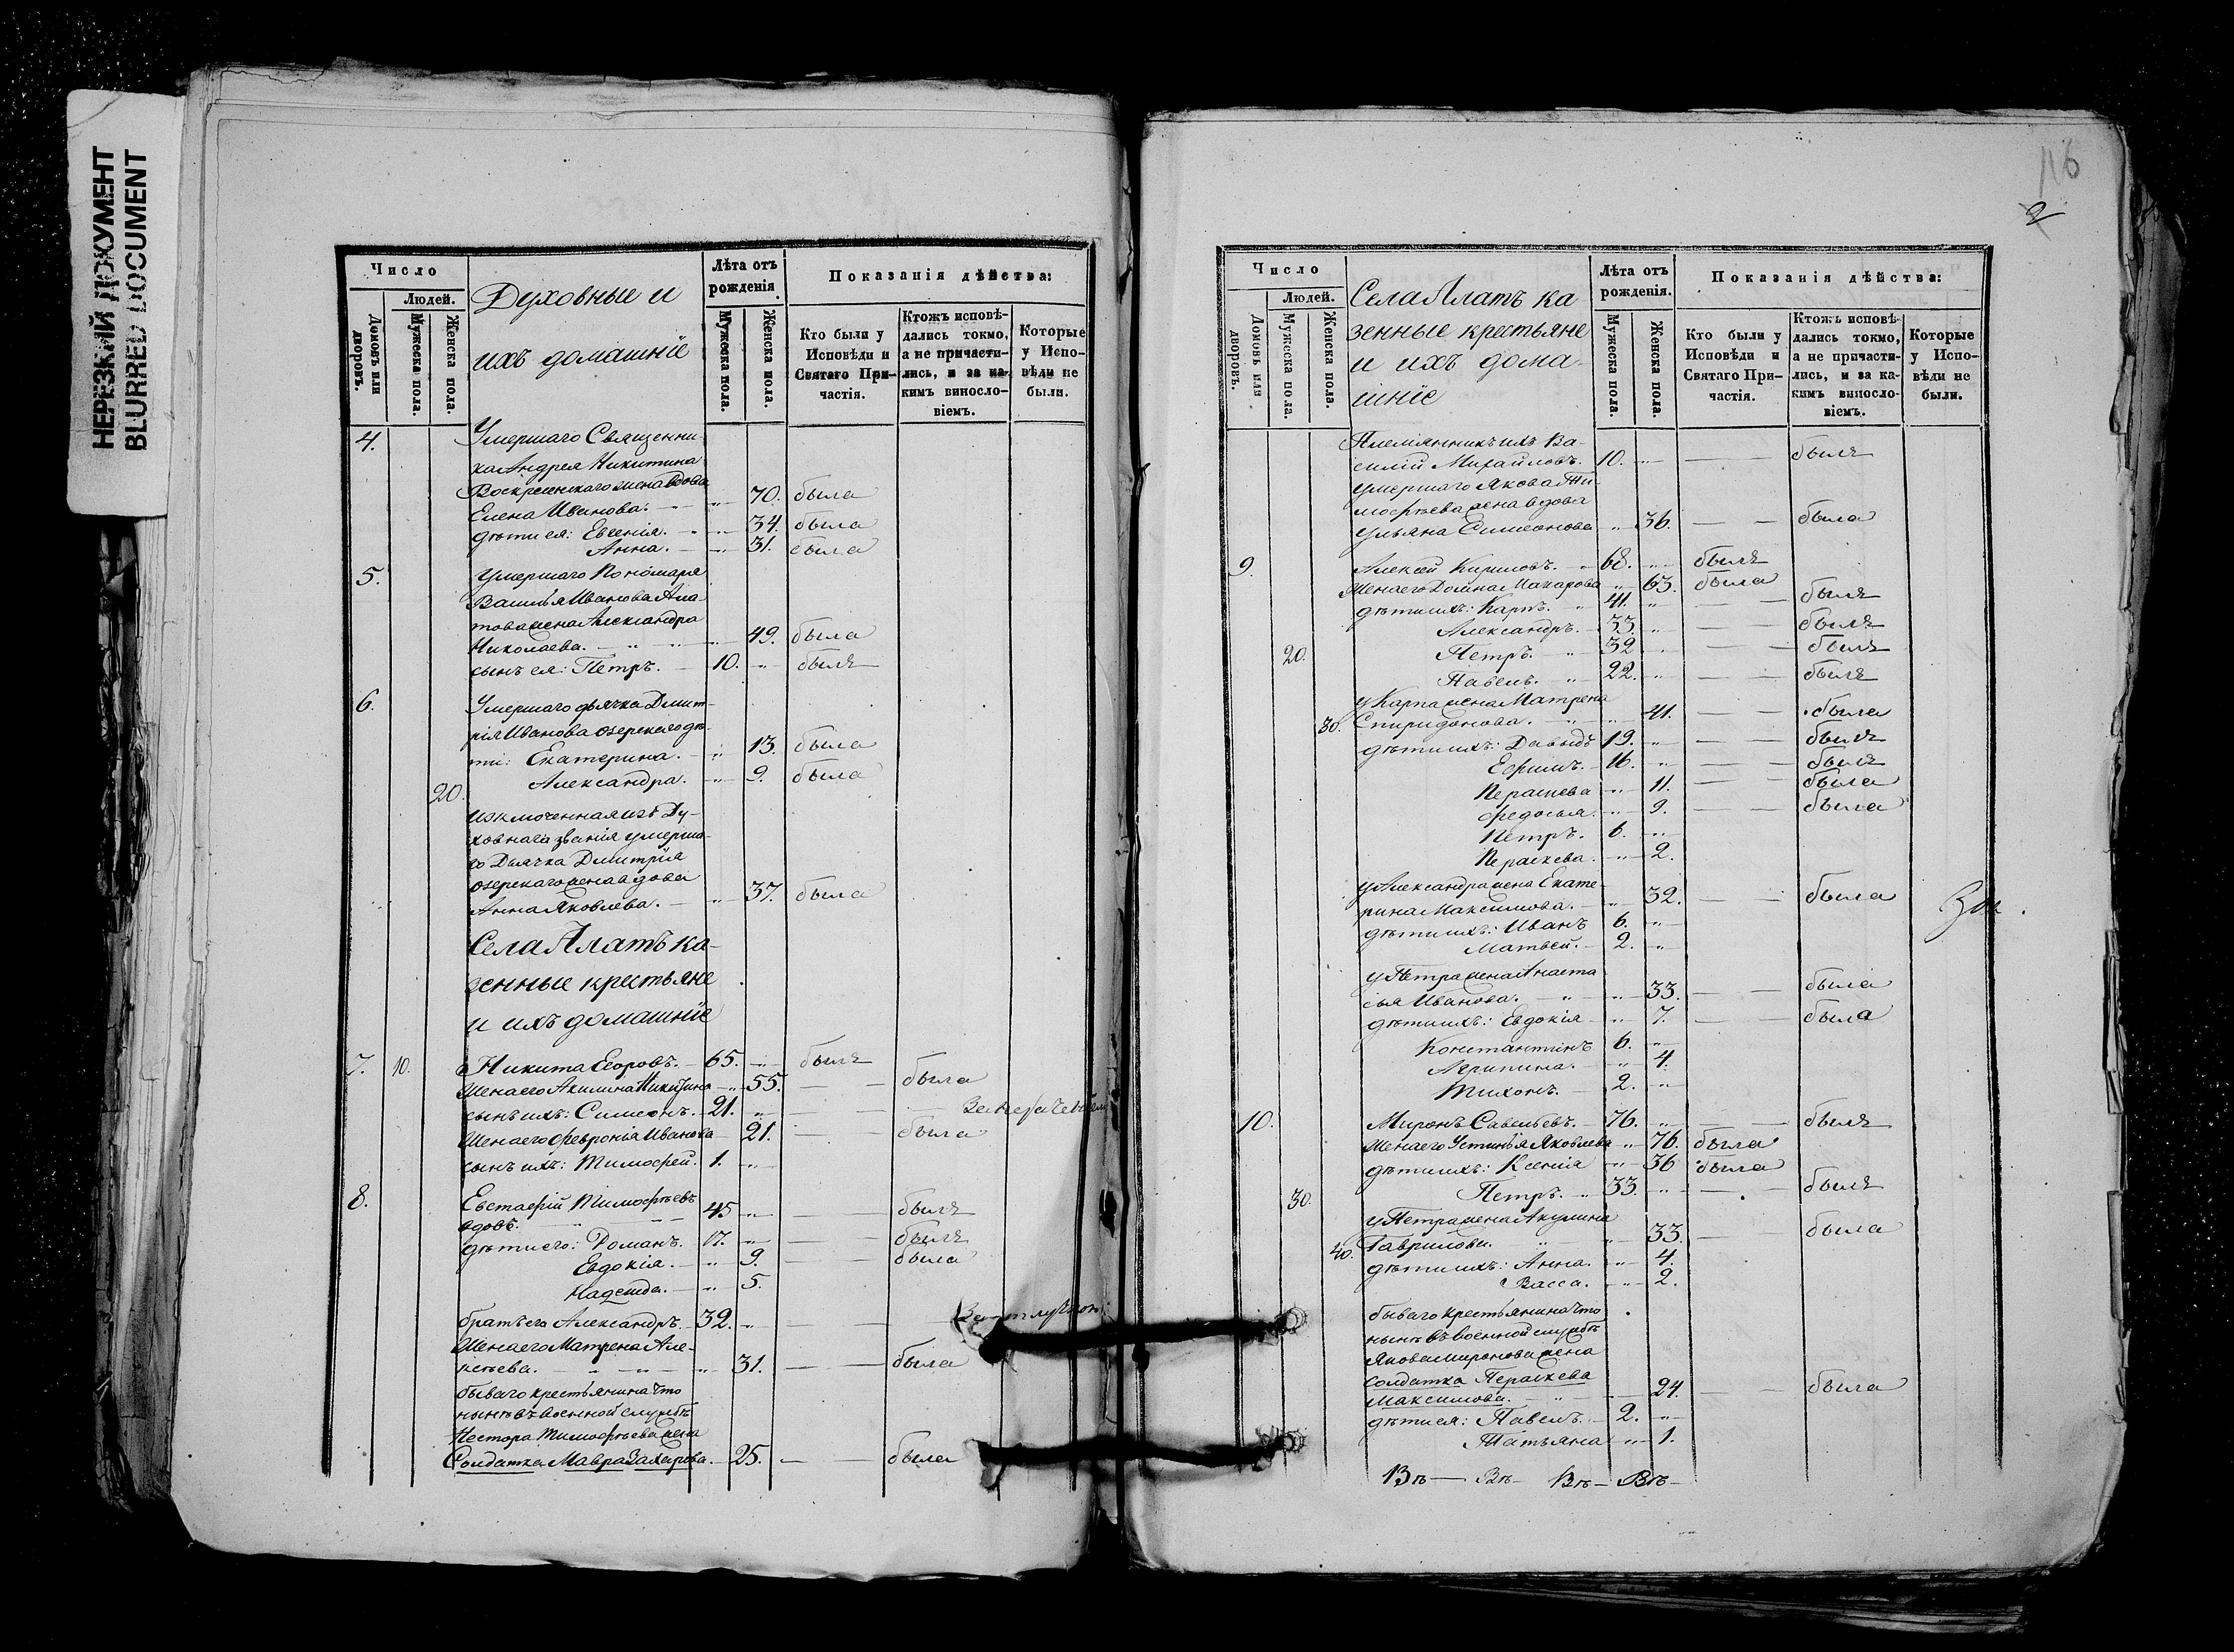 НЕРЕЗКИЙ ДОКУМЕНТ
BLURRED DOCUMENT
Число
Людей.
Домовъ или дворовъ.
Мужеска пола.
Женска пола.
Духовные и
ихъ домашніе
Лѣта отъ рожденія.
Мужеска пола.
Женска пола.
Показанія дѣйства:
Кто были у Исповѣди и Святаго Причастія.
Ктожъ исповѣдались токмо, а не причастились, и за какимъ винословіемъ.
Которые у Исповѣди не были.
4. Умершаго Священни-
ка Андрея Никитина
Воскресенскаго жена вдова
Елена Иванова. - „ - 70. была
дѣти ея: Евгенія. - „ - 34. была
Анна. - „ - 31. была
5. Умершаго Пономаря
Василья Иванова Ала-
това жена Александра
Николаева. - „ - 49. была
сынъ ея: Петръ. - 10. „ былъ
6. Умершаго дьячка Дмит-
рія Иванова Озерскаго дѣ-
ти: Екатерина. - „ - 13. была
Александра. - „ - 9. была
20.
Изключенная изъ Ду-
ховнаго званія умерша-
го Дьячка Дмитрія
Озерскаго жена вдова
Анна Яковлева. - „ - 37. была
Села Алатъ ка-
зенные крестьяне
и ихъ домашніе
7. 10. Никита Егоровъ. - 65. „ былъ
Жена его Акилина Никитина - „ - 55. — — была
сынъ ихъ: Симеонъ. - 21. „ — —
Жена его Февронія Иванова - 21. была
сынъ ихъ: Тимофей. 1. „
8. Евстафій Тимофѣевъ
вдовъ. 45 „ — — былъ
дѣти его: Романъ. - 17. „ — — былъ
Евдокія. - „ - 9. — — была
Надежда. - „ - 5.
братъ его Александръ. - 32. „ — — За отлучкою
Жена его Матрена Але-
ксѣева. „ 31. — — была
бываго крестьянина что
нынѣ въ военной службѣ
Нестора Тимофѣева жена
Солдатка Мавра Захарова. - 25. — — была
116
2
Число
Людей.
Домовъ или дворовъ.
Мужеска пола.
Женска пола.
Села Алатъ ка
зенные крестьяне
и ихъ дома-
шніе
Лѣта отъ рожденія.
Мужеска пола.
Женска пола.
Показанія дѣйства:
Кто были у Исповѣди и Святаго Причастія.
Ктожъ исповѣдались токмо, а не причастились, и за какимъ винословіемъ.
Которые у Исповѣди не были.
Племянникъ ихъ Ва-
силій Михайловъ. 10. „ — былъ
умершаго Якова Ти-
мофѣева жена вдова
Ульяна Симеонова „ 36. — — была
9. Алексѣй Кириловъ. - 68. „ былъ
Жена его Домна Макарова „ 63. была
дѣти ихъ: Карпъ. „ 41. „ — — былъ
Александръ. - 33. „ — — былъ
20. Петръ. „ 32 „ — — былъ
Павелъ. „ 22. „ — — былъ
у Карпа жена Матрена
30. Спиридонова. „ 41. — — была
дѣти ихъ: Давыдъ 19. „ — — былъ
Ефимъ. - 16. „ — — былъ
Пераскева „ 11. — — была
Федосья. „ 9. — — была
Петръ. 6. „
Пераскева. - „ 2.
у Александра жена Екате-
рина Максимова. - „ 32. — — была
дѣти ихъ: Иванъ 6. „
Матвей. - 2. „
у Петра жена Анаста
сья Иванова. „ 33. — — была
дѣти ихъ: Евдокія - „ 7. — — была
Константинъ 6. „
Агрипина. - „ 4.
Тихонъ. - 2. „
10. Миронъ Савельевъ. - 76. „ — былъ
Жена его Устинья Яковлева „ 76. была
дѣти ихъ: Ксенія „ 36 была
30. Петръ. „ 33. „ — — былъ
у Петра жена Акулина
40. Гаврилова. „ 33. — была
дѣти ихъ: Анна. - „ 4.
Васса. - „ 2.
бываго крестьянина что
нынѣ въ военной службѣ
Якова Миронова жена
солдатка Пераскева
Максимова. „ 24. — — была
дѣти ея: Павелъ. - 2. „
Татьяна „ 1.